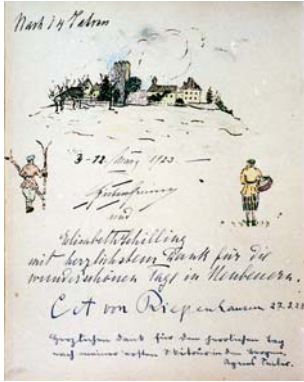 Nach 14 Jahren
3-12. März 1923
und
Elisabeth Schilling
mit herzlichstem Dank für die
wunderschönen Tage in Neubeuern.
C A von Riepenhausen 27.3.23
Herzlichen Dank für den herrlichen Tag
nach meiner ersten Skitour in den Bergen.
Agnes